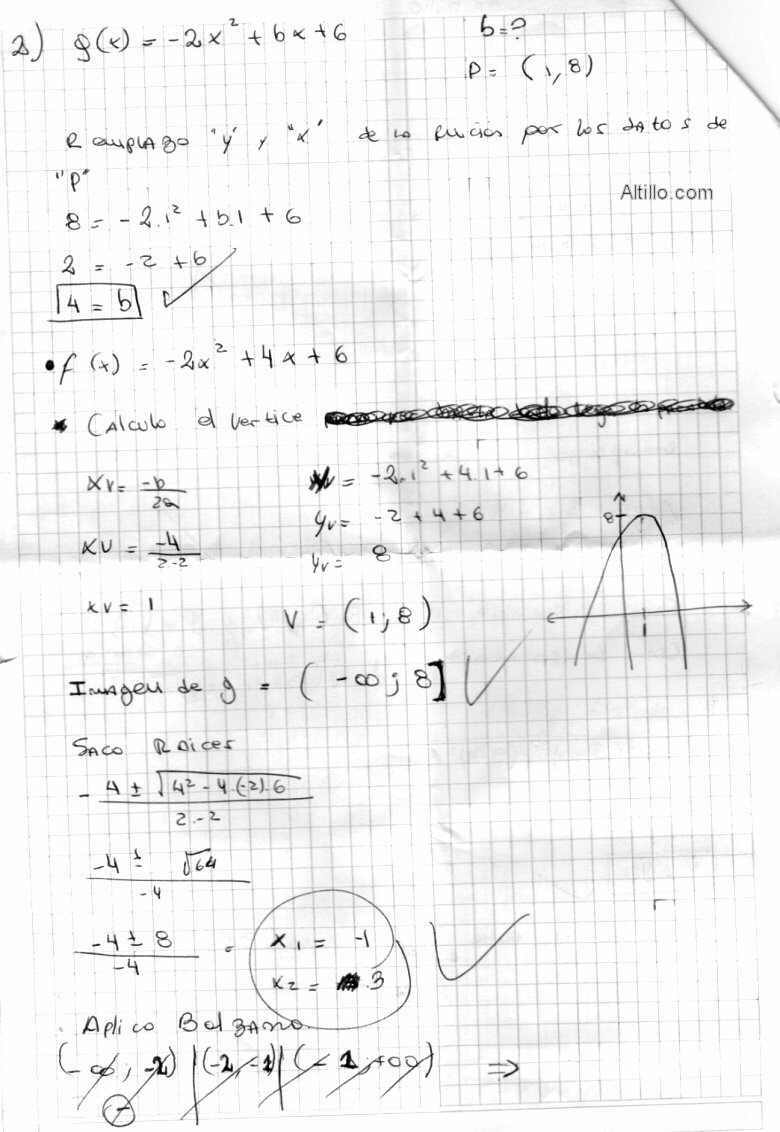 2) g(x) = -2x² + bx + 6
b = ?
P = (1, 8)
Remplazo "y" y "x" de la función por los datos de
"P"
Altillo.com
8 = -2.1² + b.1 + 6
2 = -2 + b
4 = b
• f(x) = -2x² + 4x + 6
Calculo el vertice
xv = -b/2a
yv = -2.1² + 4.1 + 6
xv = -4/2.-2
yv = -2 + 4 + 6
xv = 1
yv = 8
V = (1; 8)
8
1
Imagen de g = (-∞; 8]
Saco Raices
-4 ± √4² - 4.(-2).6 / 2.-2
-4 ± √64 / -4
-4 ± 8 / -4 = x₁ = -1
x₂ = 3
Aplico Bolzano
(-∞, -2) | (-2, -1) | (-1, +∞) ⇒
-